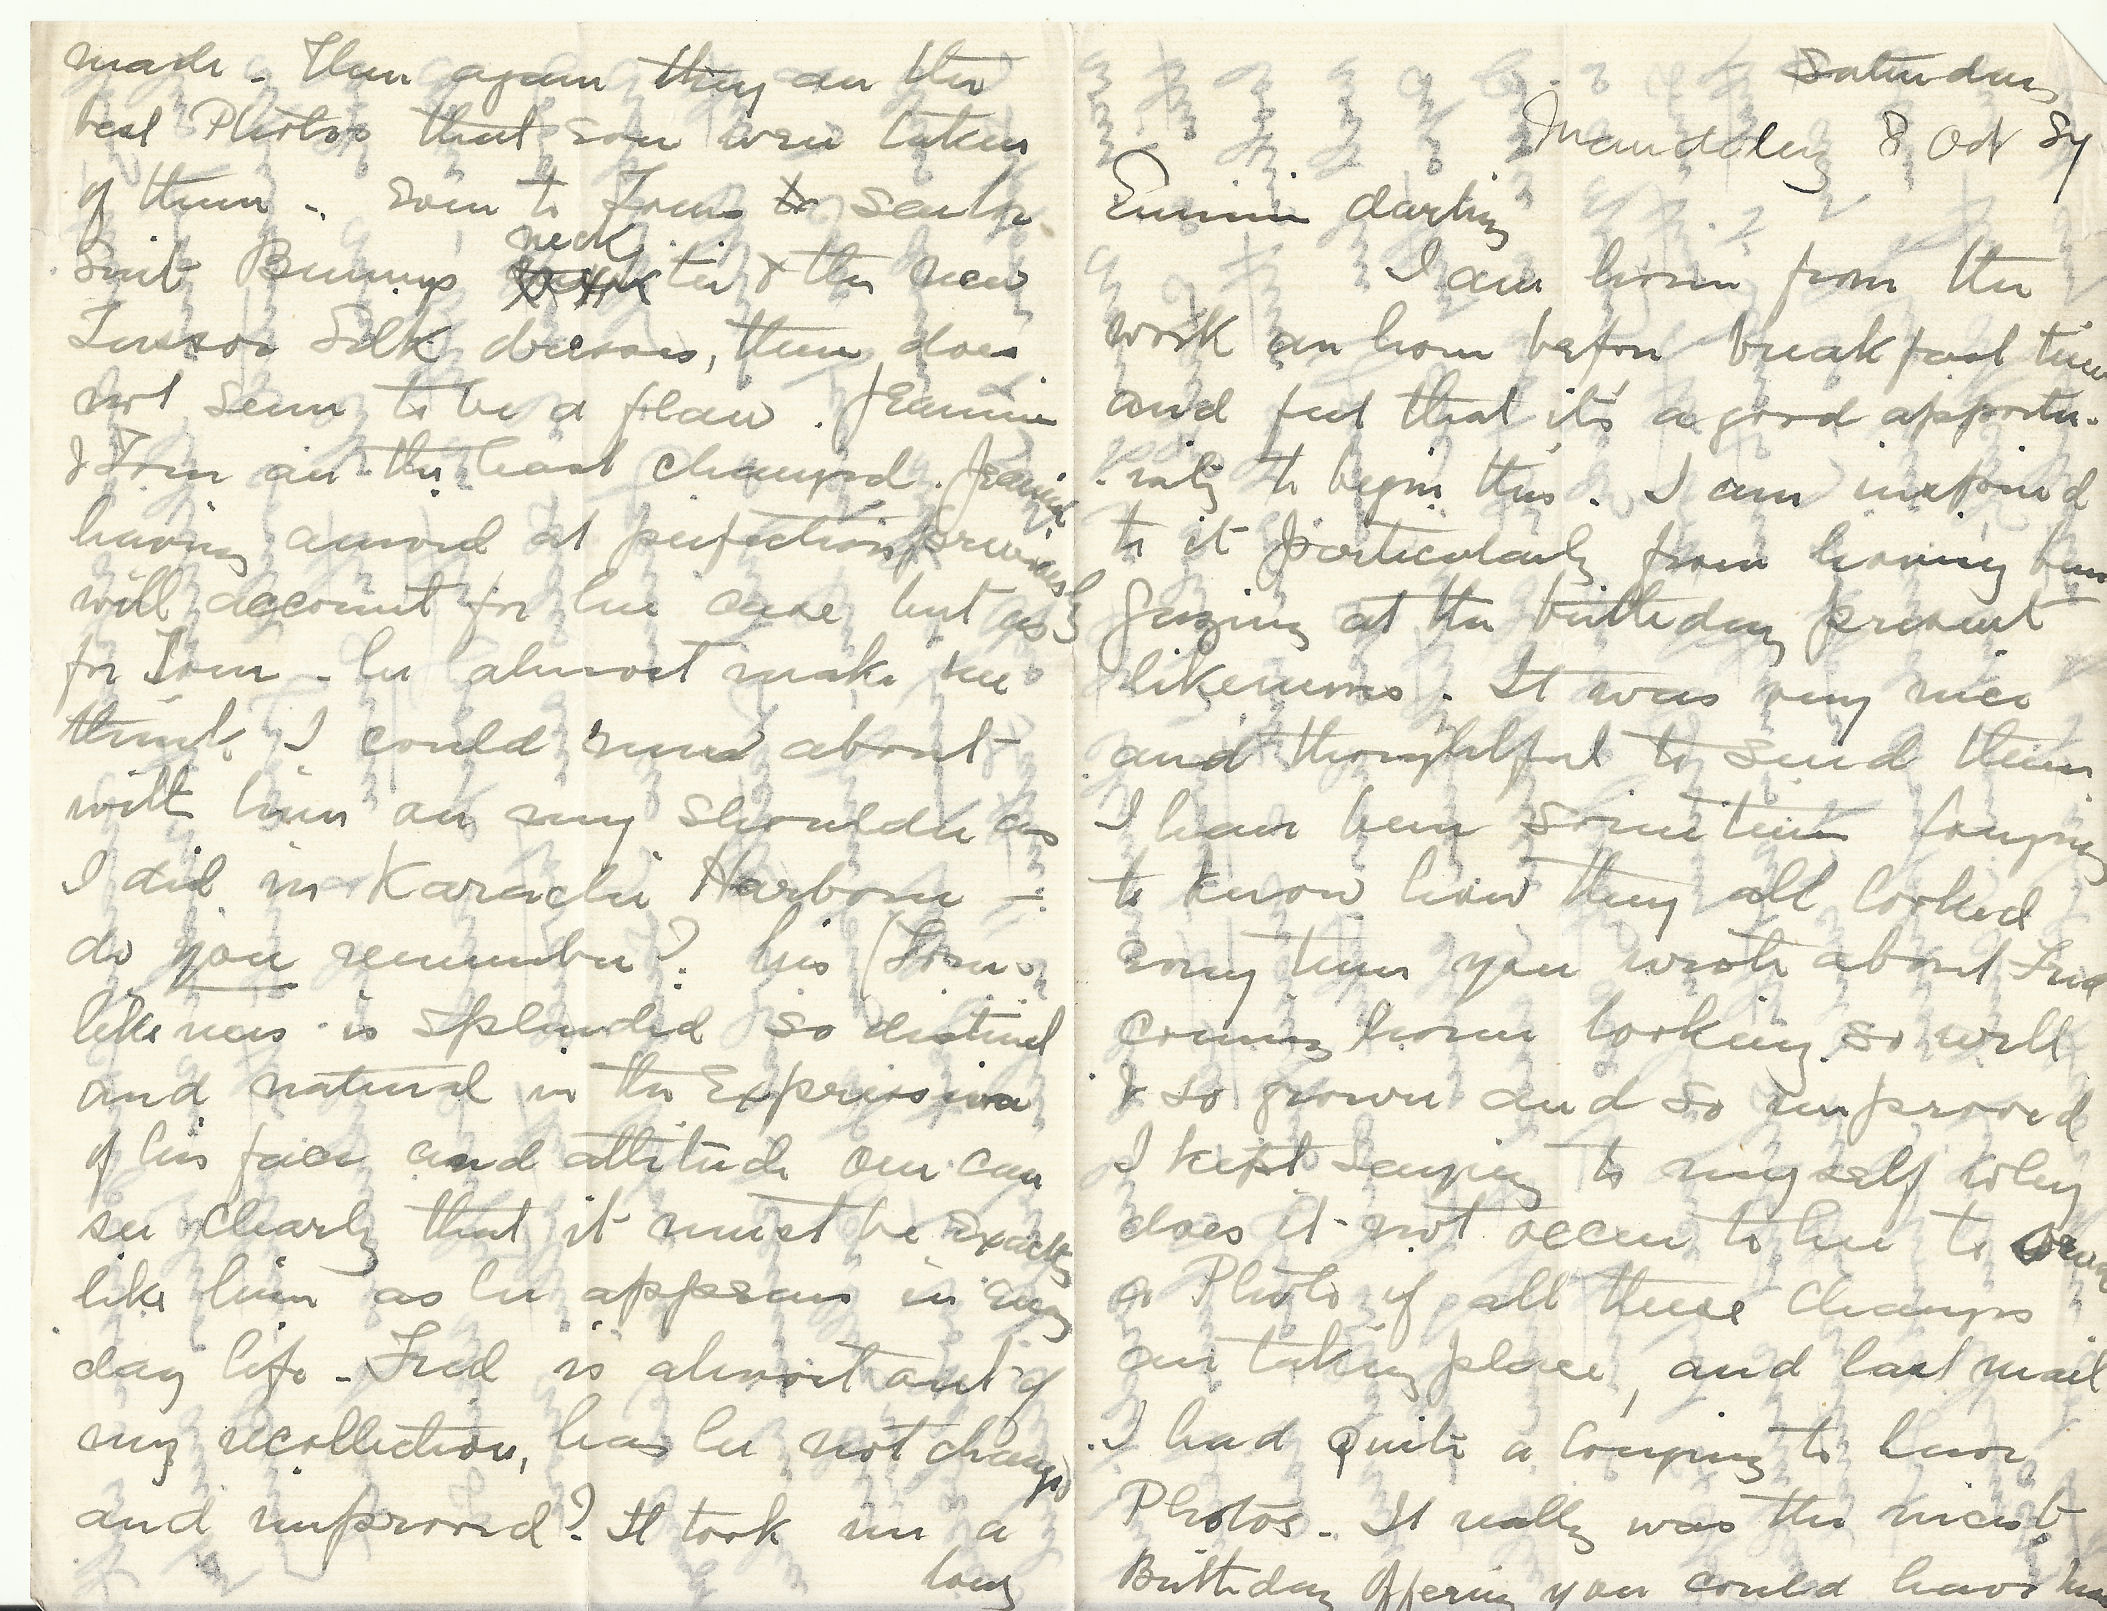 Saturday
Mandalay 8 Oct 87
Emmie darling
I am home from the
work an hour before breakfast time
and feel that it's a good opportu-
-nity to begin this. I am inspired
to it particularly from having been
gazing at the birthday present
likenesses. It was very nice
and thoughtful to send them.
I have been sometime longing
to know how they all looked
every time you wrote about Fred
coming home looking so well
& so grown and so improved
I kept saying to myself why
does it not occur to her to send
a Photo if all these changes
are taking place, and last mail
I had quite a longing to have
Photos. It really was the nicest
Birthday Offering you could have
made - Then again they are the
best Photos that ever were taken
of them - Even to Toms sailor
Suit Bunnys neck tie & the new
Tussor Silk dresses, there does
not seem to be a flaw. Jeannie
& Tom are the least changed. Jeannie
having arrived at perfection previously
will account for her case but as
for Tom - he almost makes me
think I could run about
with him on my shoulder as
I did in Karachi Harbour -
do you remember? his (Toms)
likeness is splendid so distinct
and natural in the Expression
of his face and attitude one can
see clearly that it must be Exactly
like him as he appears in Every
day life - Fred is almost out of
my recollection, has he not changed
and improved? It took me a
long